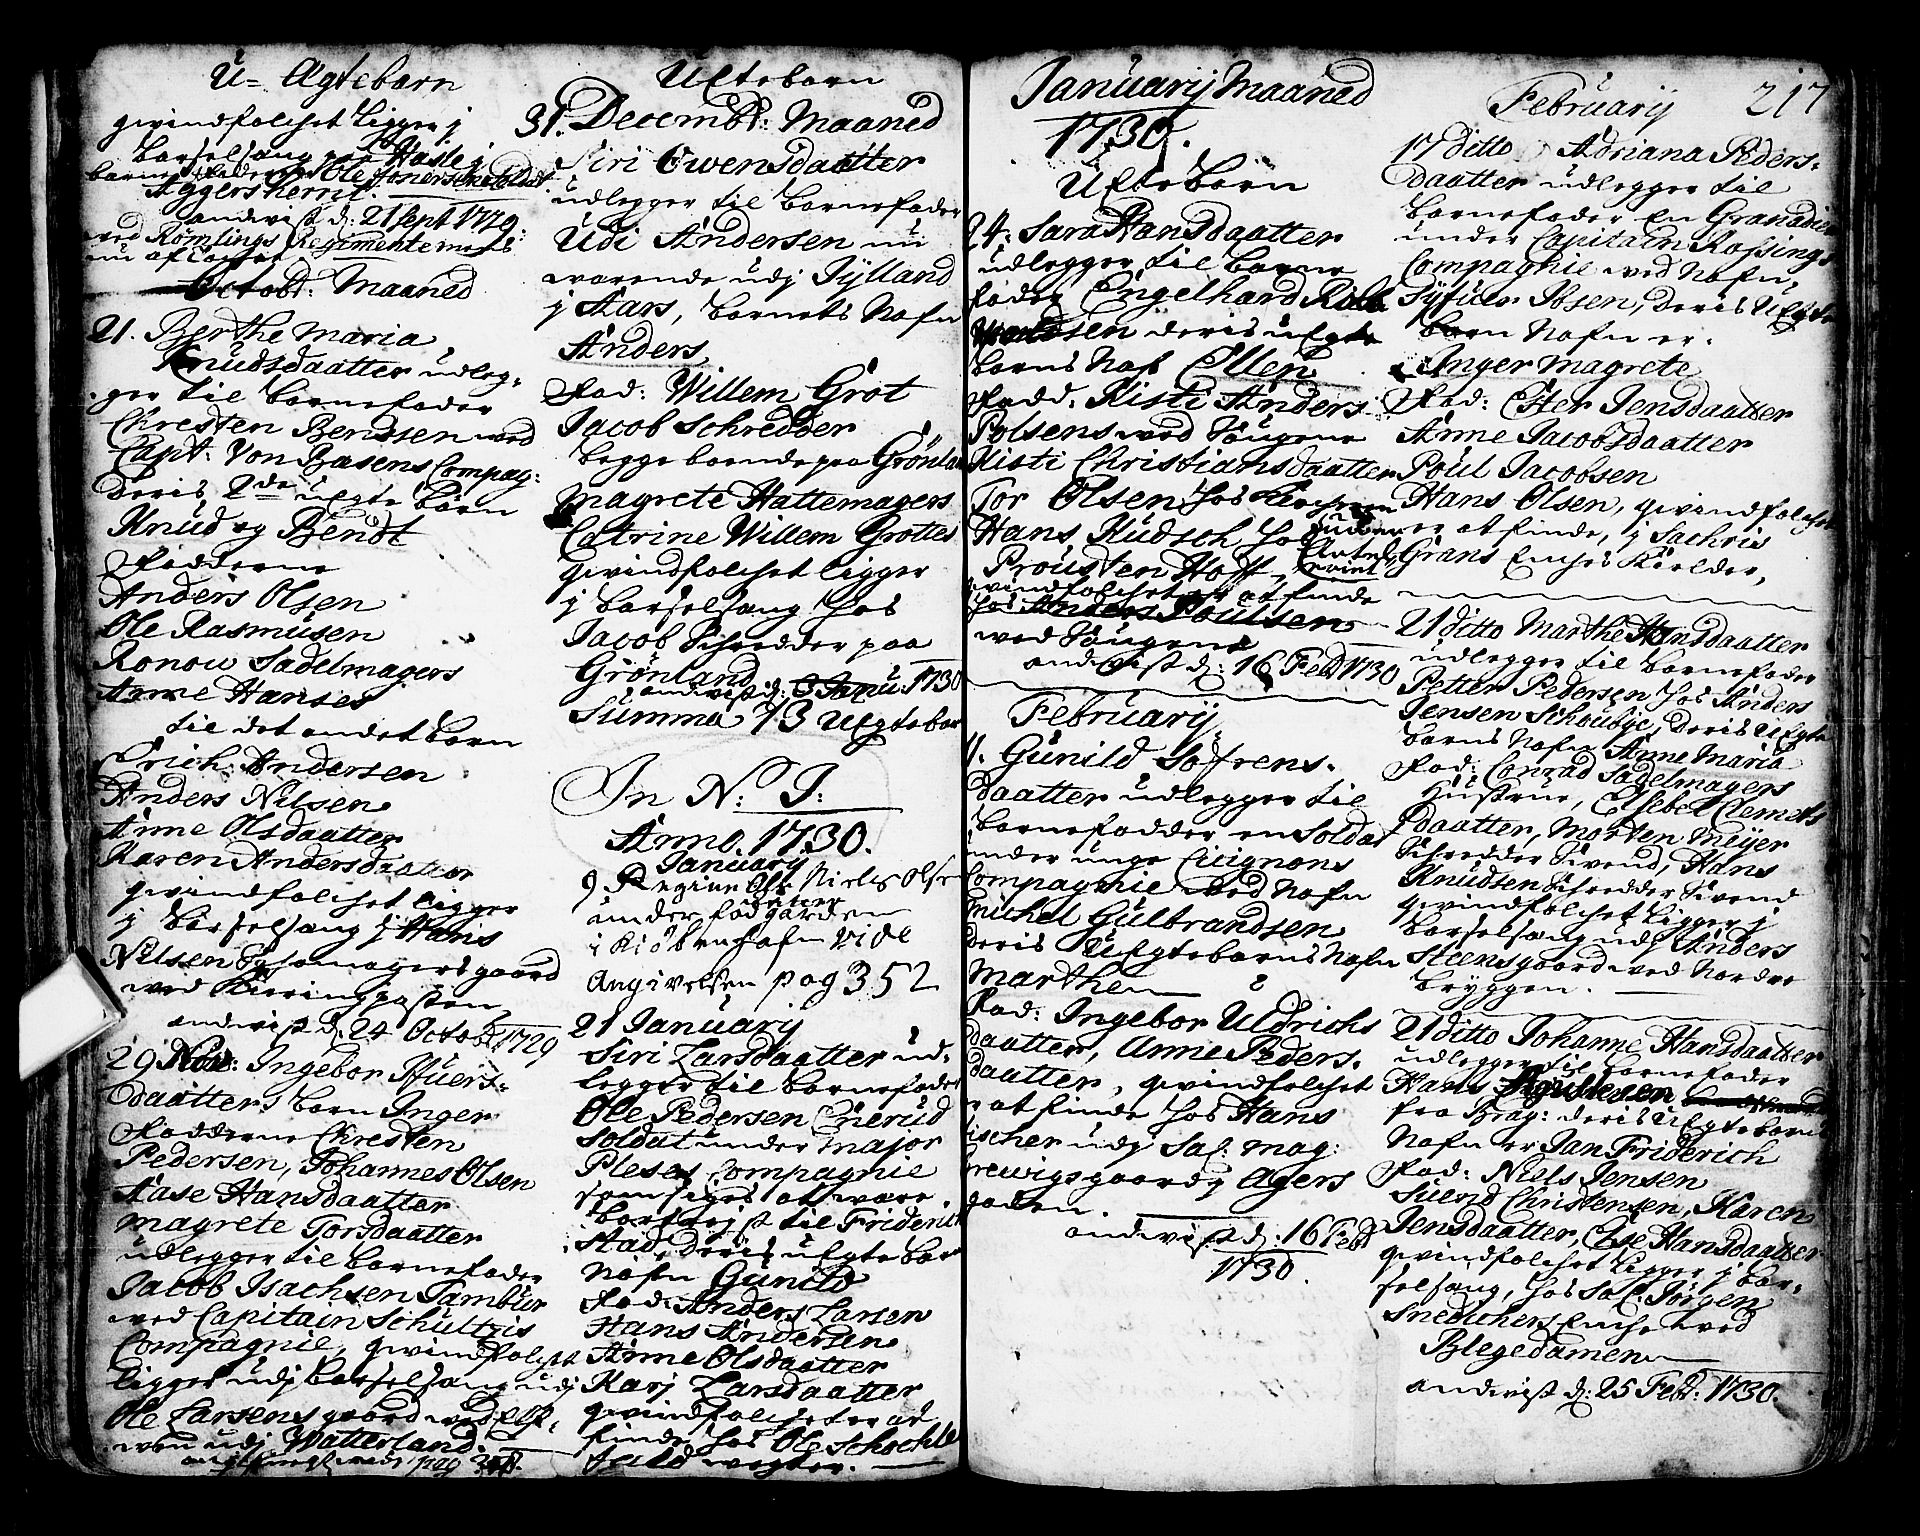 U= Ægtebørn
qvindfolchet ligger j
barselsæng paa Hasle j
barnefader Ole Joensen soldat
Aggersherrit.
andvist d: 21 Sept 1729:
ved Römlings Regimente
nu af
Octobr: Maaned
21. Berthe Maria
Knudsdaatter udleg-
ger til barnefader
Chresten Bendsen ved
Capt: Von Basens Compag:
deris 2de uEgte börn
Knud og Bendt
Fadderne
Anders Olsen
Ole Rasmusen
Ronow Sadelmagers
Anne Hanses
til det andet barn
Erich Andersen
Anders Nilsen
Anne Olsdaatter
Karen Andersdaatter
qvindfolchet ligger
j barselsæng j Hans
Nilsen gaard
ved
andvist d: 24 Octobr 1729
29 Nov: Ingebor
daatters barn Inger
Fadderne Chresten
Pedersen, Johannes Olsen
Aase Hansdaatter
Magrete Torsdaatter
udlegger til barnefader
Jacob Isachsen Tambur
ved Capitain Schultzis
Compagnie, qvindfolchet
ligger udj barselsæng udj
Ole Larsens gaard ved
udj Watterland.
UEcte börn
31. Decembr: Maaned
Siri Owensdaatter
udlegger til barnefader
Udi Andersen nu
værende udj Jylland
j Aars, barnets Nafn
Anders
Fad: Willem Grot
Jacob Schredder
begge boende paa Grönland
Magrete Hattemagers
Catrine Willem Grottes
qvindfolchet ligger
j barselsæng hos
Jacob Schredder paa
Grönland
andvist d: 3 Janu: 1730
Summa 73 uEgte bør
In N: J:
Anno. 1730.
January
9 Niels Olsen
under
i Kiöbenhafn vide
Angivelsen pag 352
21 January
Siri Larsdaatter ud-
legger til barnefader
Ole Pedersen Enerud
Soldat under Major
Pleses Compagnie
som siges at være
bortrejst til Friderich
stad, deris uEgte bar
Nafn Gunild
Fad: Anders Larsen
Hans Andersen
Anne Olsdaatter
Karj Larsdaatter
qvindfolchet er at
finde hos Ole
vegter.
January Maaned
1730.
UEcte Börn
24. Sara Hansdaatter
udlegger til barne
fader Engelhard
deris uEgte
barns Naf Ellen
Fadd. Kisti Anders
Polsens ved Vougene
Kisti Christiansdaatter
Tor Olsen hos
Hans Kudsch hos
Prousten Hoff,
qvindfolchet er at finde
hos Anders Poulsen
ved Vougene
andvist d: 16 Feb 1730
February
11. Gunild Sofrens-
daatter udlegger til
barnefadder en Soldat
under unge Cicignons
Compagnie ved Nafn
Michel Gulbrandsen
deris UEgte barns Nafn
Marthe
Fad: Ingebor Uldrichs
daatter, Anne Peders-
daatter, qvindfolchet
er at finde hos Hans
Fischer udj Sal. Mag:
gaard j Agers
gaden.
andvist d: 16 Feb
1730.
February 217
17 ditto Adriana Peders-
daatter udlegger til
barnefader En Granadier
under Capitain Rossings
Compagnie ved Nafn,
Ibsen, deris UEgte
barn Nafn er.
Inger Magrete
Fad: Ester Jensdaatter
Anne Jacobsdaatter
Poul Jacobsen
Hans Olsen, qvindfolchet
er at finde, j Sachris
Grans Enches Kielder,
21 ditto Marthe Hansdaatter
udlegger til barnefader
Petter Pedersen hos Anders
Jensen Schoubye, deris uEgte
barns Nafn Anne Maria
Fad: Conrad Sadelmagers
Hustrue, Elsebet Clemets
daatter, Morten Meyer
Schredder Svend, Hans
Knudsen Schredder Svend
qvindfolchet ligger j
barselsæng udj Anders
Steens gaard ved Nordre
bryggen.
21 ditto Johanne Hansdaatter
udlegger til barnefader
Hans
fra Brag: deris uEgte barns
Nafn er Jan Friderich
Fad: Niels Jensen
Suend Christensen, Karen
Jensdaatter, Else Hansdaatter
qvindfolchet ligger j bar-
selsæng, hos Sal. Jörgen
Snedichers Enche ved
Blegedamen
andvist d: 25 Feb: 1730.